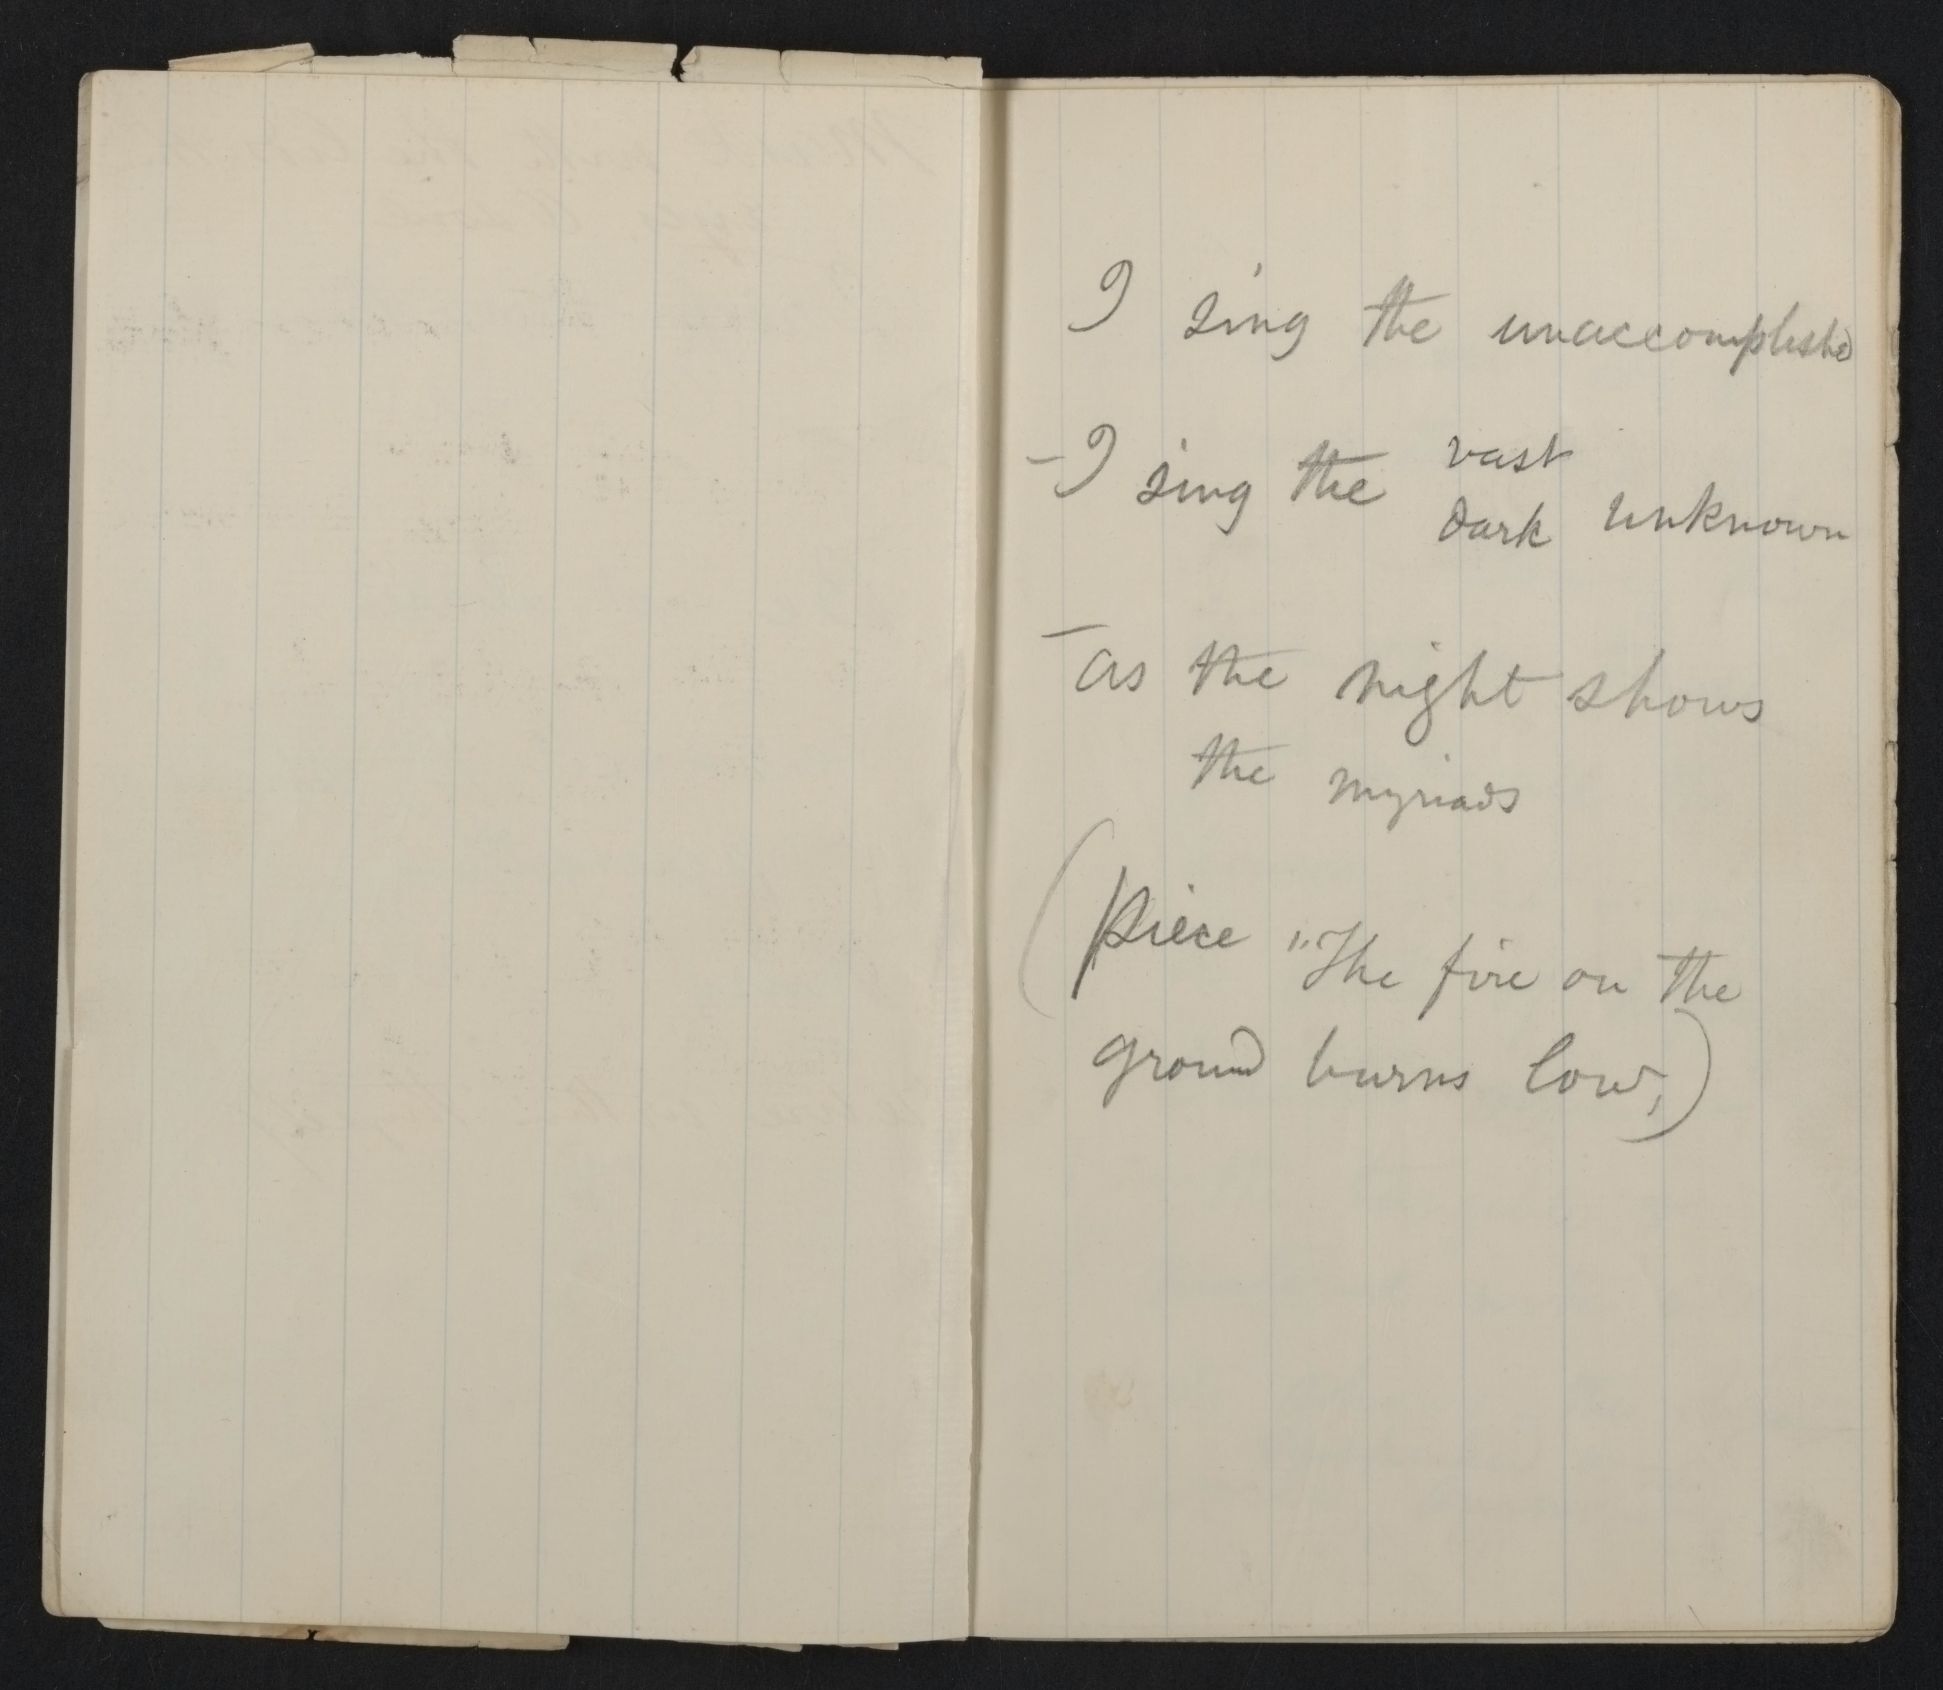 I sing the unaccomplished
– I sing the vast
dark unknown
– as the night shows
the myriads
(piece "The fire on the
ground burns low,)